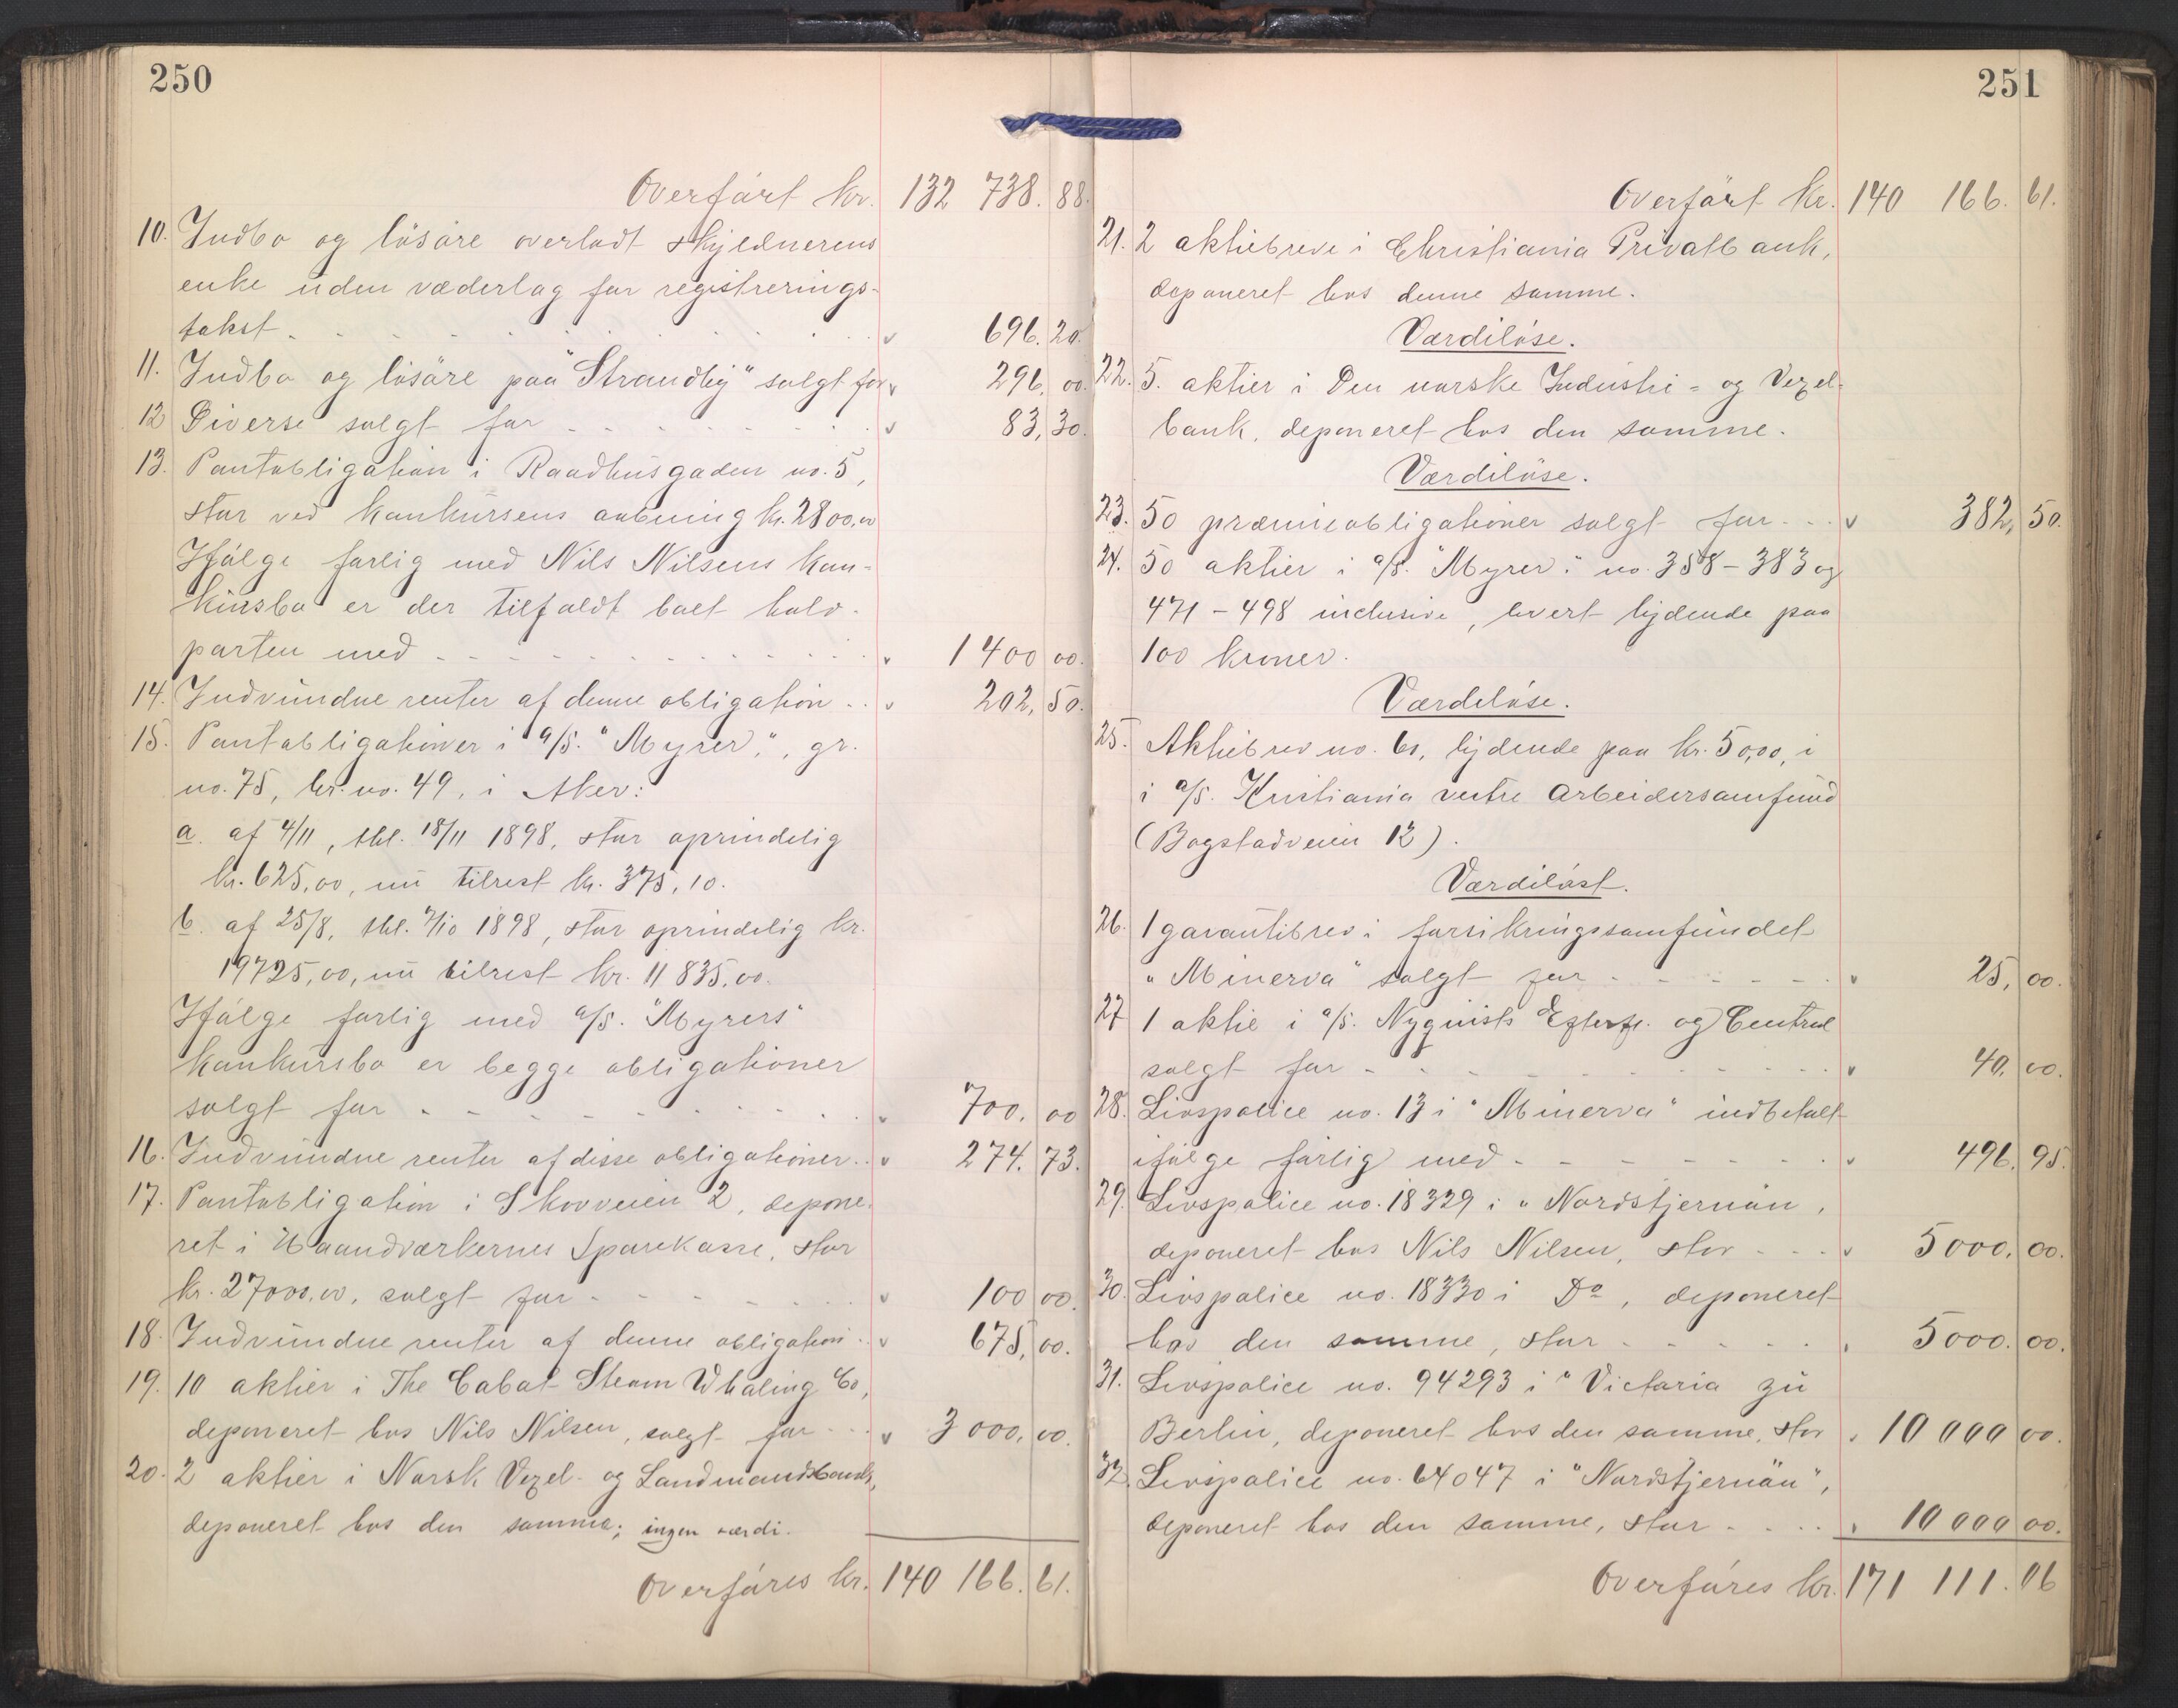 250
Overført kr. 132 738. 88.
10. Indbo og løsøre overladt skyldnerens
enke uden væderlag for registrerings-
takst 696. 20.
11. Indbo og løsøre paa "Strandby" solgt for 296. 00.
12 Diverse solgt for 83, 30.
13. Pantobligation i Raadhusgaden no. 5,
stor ved konkursens aabning kr. 2800,00
Ifølge forlig med Nils Nilsens kon-
kursbo er der tilfaldt boet halv-
parten med 1 400 00.
14. Indvundne renter af denne obligation 202, 50.
15. Pantobligationer i a/s. "Myrer", gr.
no. 75, br. no. 49, i Aker:
a. af 4/11, thl. 18/11 1898, stor oprindelig
kr. 625,00, nu tilrest kr. 375,10.
b. af 25/8, thl. 7/10 1898, stor oprindelig kr.
19725,00, nu tilrest kr. 11 835,00.
Ifølge forlig med a/s. "Myrers"
konkursbo er begge obligationer
solgt for 700. 00
16. Indvundne renter af disse obligationer 274. 73.
17. Pantobligation i Skovveien 2, depone-
ret i Haandværkernes Sparekasse, stor
kr. 27000,00, solgt for 100 00.
18. Indvundne renter af denne obligation 675, 00.
19. 10 aktier i The Cabot Steam Whaling Co,
deponeret hos Nils Nilsen, solgt for 3 000, 00.
20. 2 aktier i Norsk Vexel- og Landmandsbank,
deponeret hos den samme; ingen værdi.
Overføres kr. 140 166. 61.
251
Overført kr. 140 166. 61.
21. 2 aktiebreve i Christiania Privatbank,
deponeret hos denne samme.
Værdiløse.
22. 5. aktier i Den norske Industri- og Vexel-
bank, deponeret hos den samme.
Værdiløse.
23. 50 præmieobligationer solgt for 382, 50.
24. 50 aktier i a/s. "Myrer" no. 358-383 og
471-498 inclusive, hvert lydende paa
100 kroner.
Værdeløse.
25. Aktiebrev no. 60, lydende paa kr. 50,00, i
i a/s. Kristiania vestre Arbeidersamfund
(Bogstadveien 12).
Værdiløst.
26. 1 garantibrev i forsikringssamfundet
"Minerva" solgt for 25, 00.
27 1 aktie i a/s. Nyquists Efterfl. og Central
solgt for 40. 00.
28. Livspolice no. 13 i "Minerva" indbetalt
ifølge forlig med 496. 95.
29. Livspolice no. 18329 i "Nordstjernan,
deponeret hos Nils Nilsen, stor 5 000. 00.
30. Livspolice no. 18330 i Do, deponeret
hos den samme, stor 5 000. 00.
31. Livspolice no. 94293 i "Victoria zu
Berlin, deponeret hos den samme, stor 10 000 00.
32. Livspolice no. 64047 i "Nordstjernan",
deponeret hos den samme, stor 10 000 00.
Overføres kr. 171 111. 06